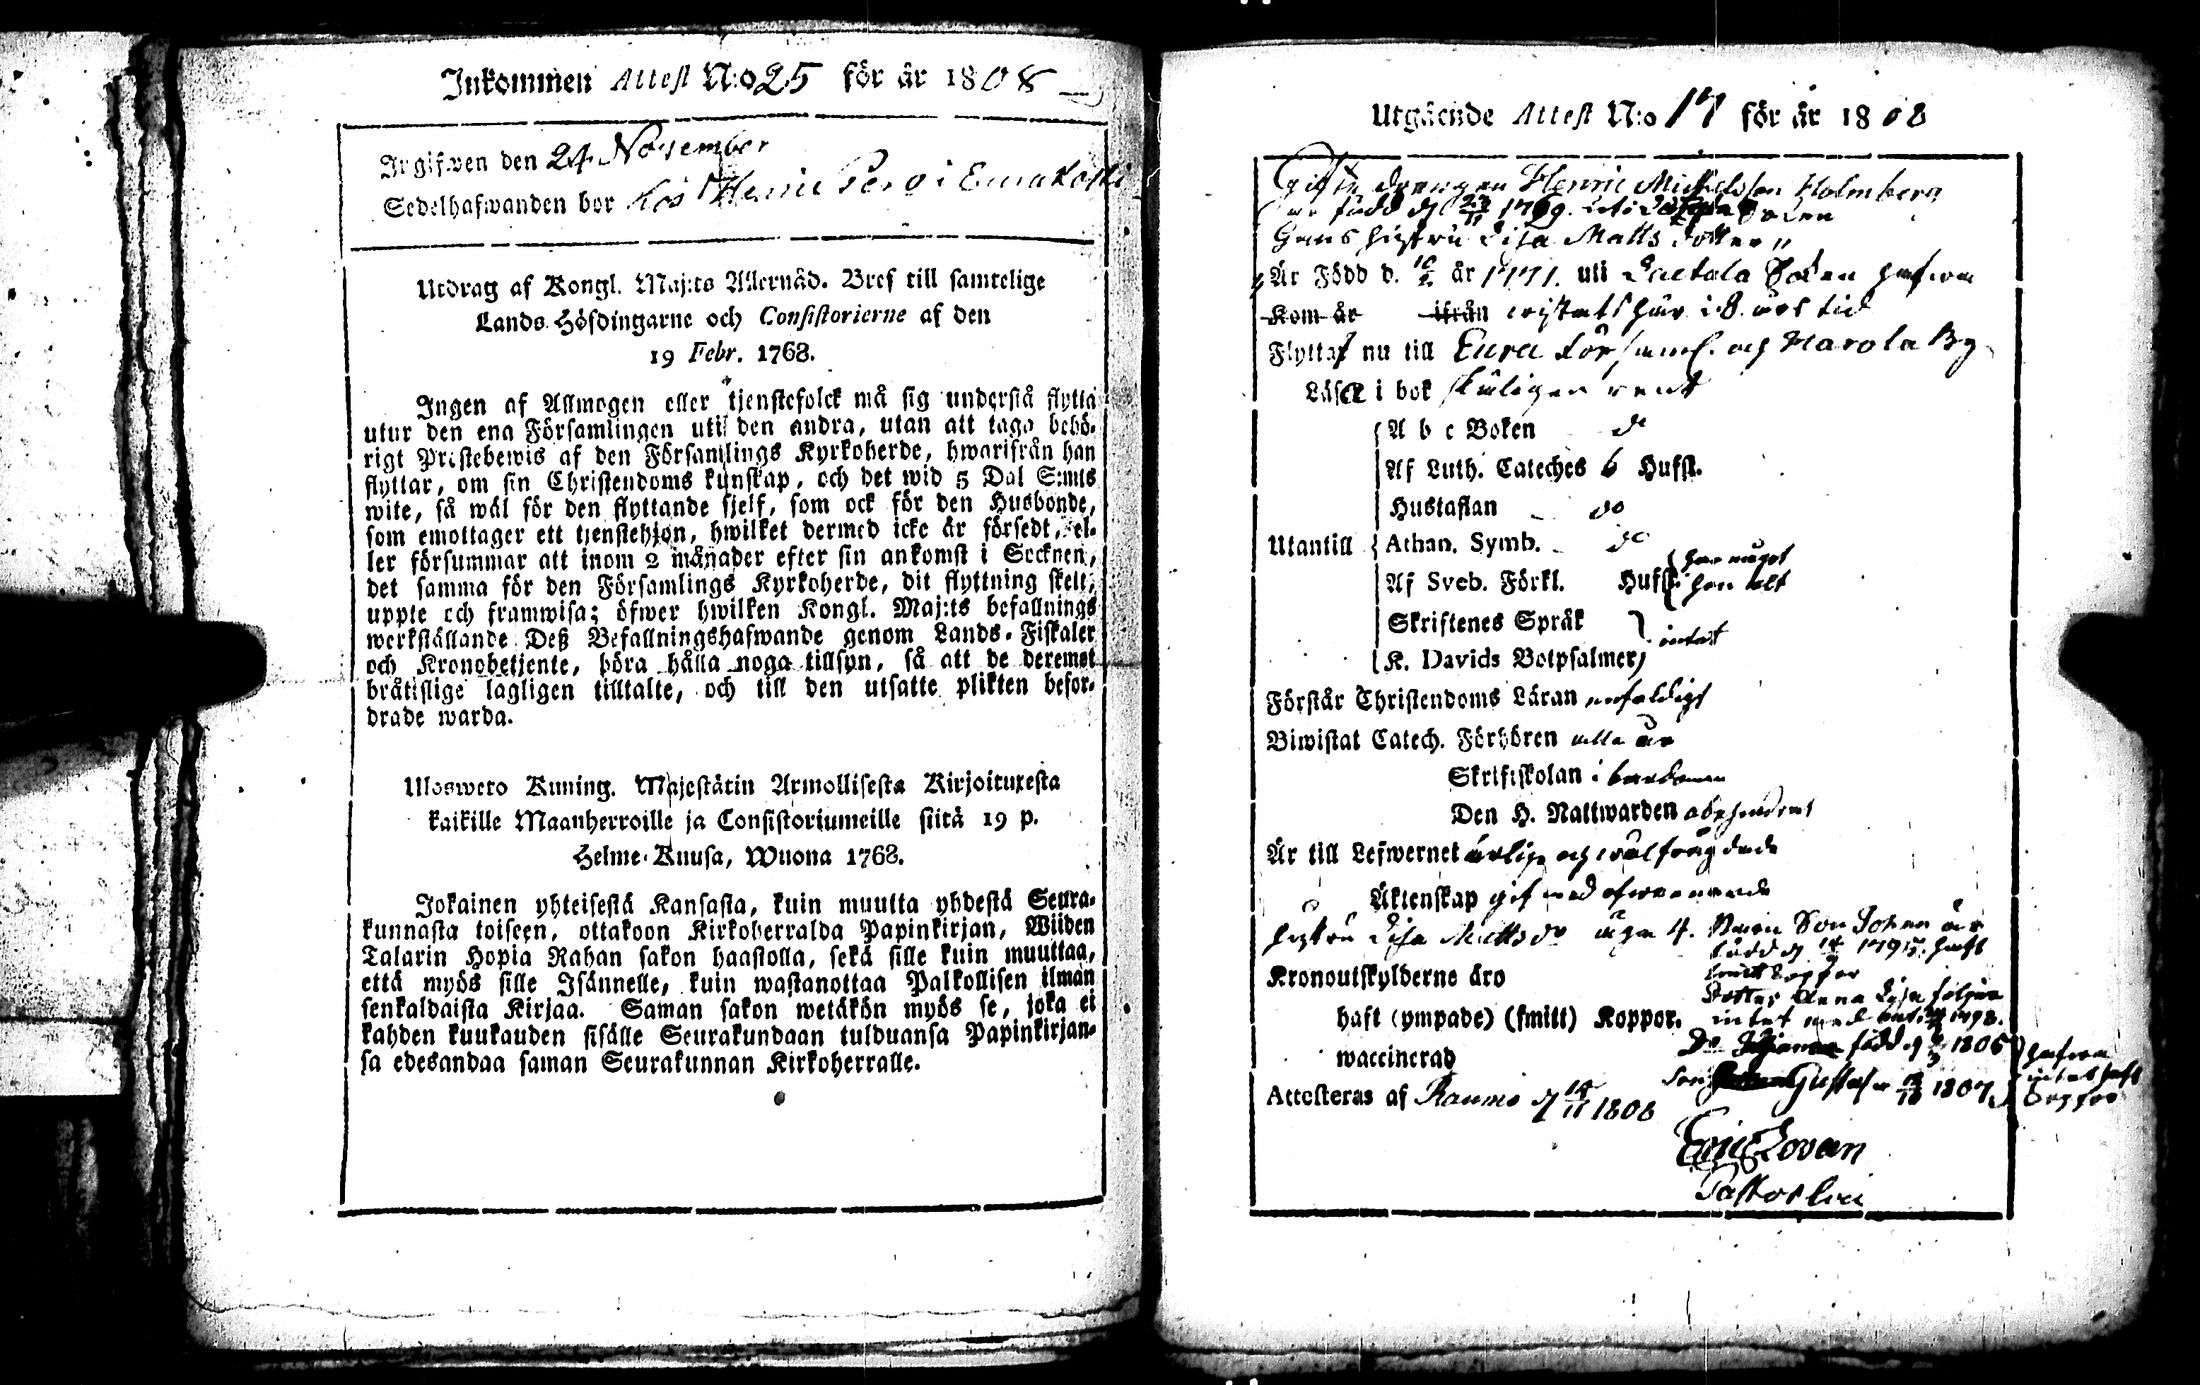 Inkommen Attest N:o 25 för år 1808
Ingifwen den 24 November
Sedelhafwanden bor hos Henric Perg i Eurakoski
Utdrag af Kongl. Maj:ts Allernåd. Bref till samtelige
Lands-Höfdingarne och Consistorierne af den
19 Febr. 1768.
Ingen af Allmogen eller tjenstefolck må sig understå flytta
utur den ena Församlingen uti den andra, utan att taga behö-
rigt Prästebewis af den Församlings Kyrkoherde, hwarifrån han
flyttar, om sin Christendoms kunskap, och det wid 5 Dal S:mts
wite, så wäl för den flyttande sjelf, som ock för den Husbonde,
som emottager ett tjenstehjon, hwilket dermed icke är försedt, el-
ler försummar att inom 2 månader efter sin ankomst i Socknen,
det samma för den Församlings Kyrkoherde, dit flyttning skett,
uppte och framwisa; öfwer hwilken Kongl. Maj:ts befallnings
werkställande Deß Befallningshafwande genom Lands-Fiskaler
och Kronobetjente, böra hålla noga tillsyn, så att de deremot
bråtislige lagligen tilltalte, och till den utsatte plikten befor-
drade warda.
Uloswero Kuning. Majestätin Armollisesta Kirjoituxesta
kaikille Maanherroille ja Consistoriumeille siitä 19 p.
Helme-Kuusa, Wuona 1768.
Jokainen yhteisestä Kansasta, kuin muutta yhdestä Seura-
kunnasta toiseen, ottakoon Kirkoherralda Papinkirjan, Wiiden
Talarin Hopia Rahan sakon haastolla, sekä sille kuin muuttaa,
että myös sille Isännelle, kuin wastanottaa Palkollisen ilman
senkaldaista Kirjaa. Saman sakon wetäkön myös se, joka ei
kahden kuukauden sisälle Seurakundaan tulduansa Papinkirjan-
sa edesandaa saman Seurakunnan Kirkoherralle.
Utgående Attest N:o 17 för år 1808
Gifte drengen Henric Michelsson Holmberg
är född d 1769. uti Socken
Hans hustru Lisa Matts dotter
Är Född d. 10/2 år 1771. uti Laetala Socken hafwa
Kom år ifrån wistats här i 8 års tid
Flyttar nu till Eura Församl. och Narola By
Läser i bok skäligen rent
A b c Boken do
Af Luth. Cateches 6 Hufst.
Hustaflan do
Utantill Athan. Symb. do
Af Sveb. Förkl. Hufst. han något
hon alt
Skriftenes Språk
K. Davids Botpsalmer intet
Förstår Christendoms Läran enfaldigt
Biwistat Catech. Förhören alla år
Skriftskolan i barndomen
Den H. Nattwarden
Är till Lefwernet ärlige och wälfrägdade
Äktenskap gift med ofwannämde
hustru Lisa Mattsdr äga 4. Barn Son Johan är
född d 1795. haft
koppor
Kronoutskylderne äro
Dotter Anna Lisa följer
haft (ympade) (smitt) Koppor. intet med nat. 1798.
Dr född d 1805 hafwa
waccinerad Son Gustaf n 1807 intet haft
koppor
Attesteras af Raumo d 14/11 1808
Eric Lovan
Past